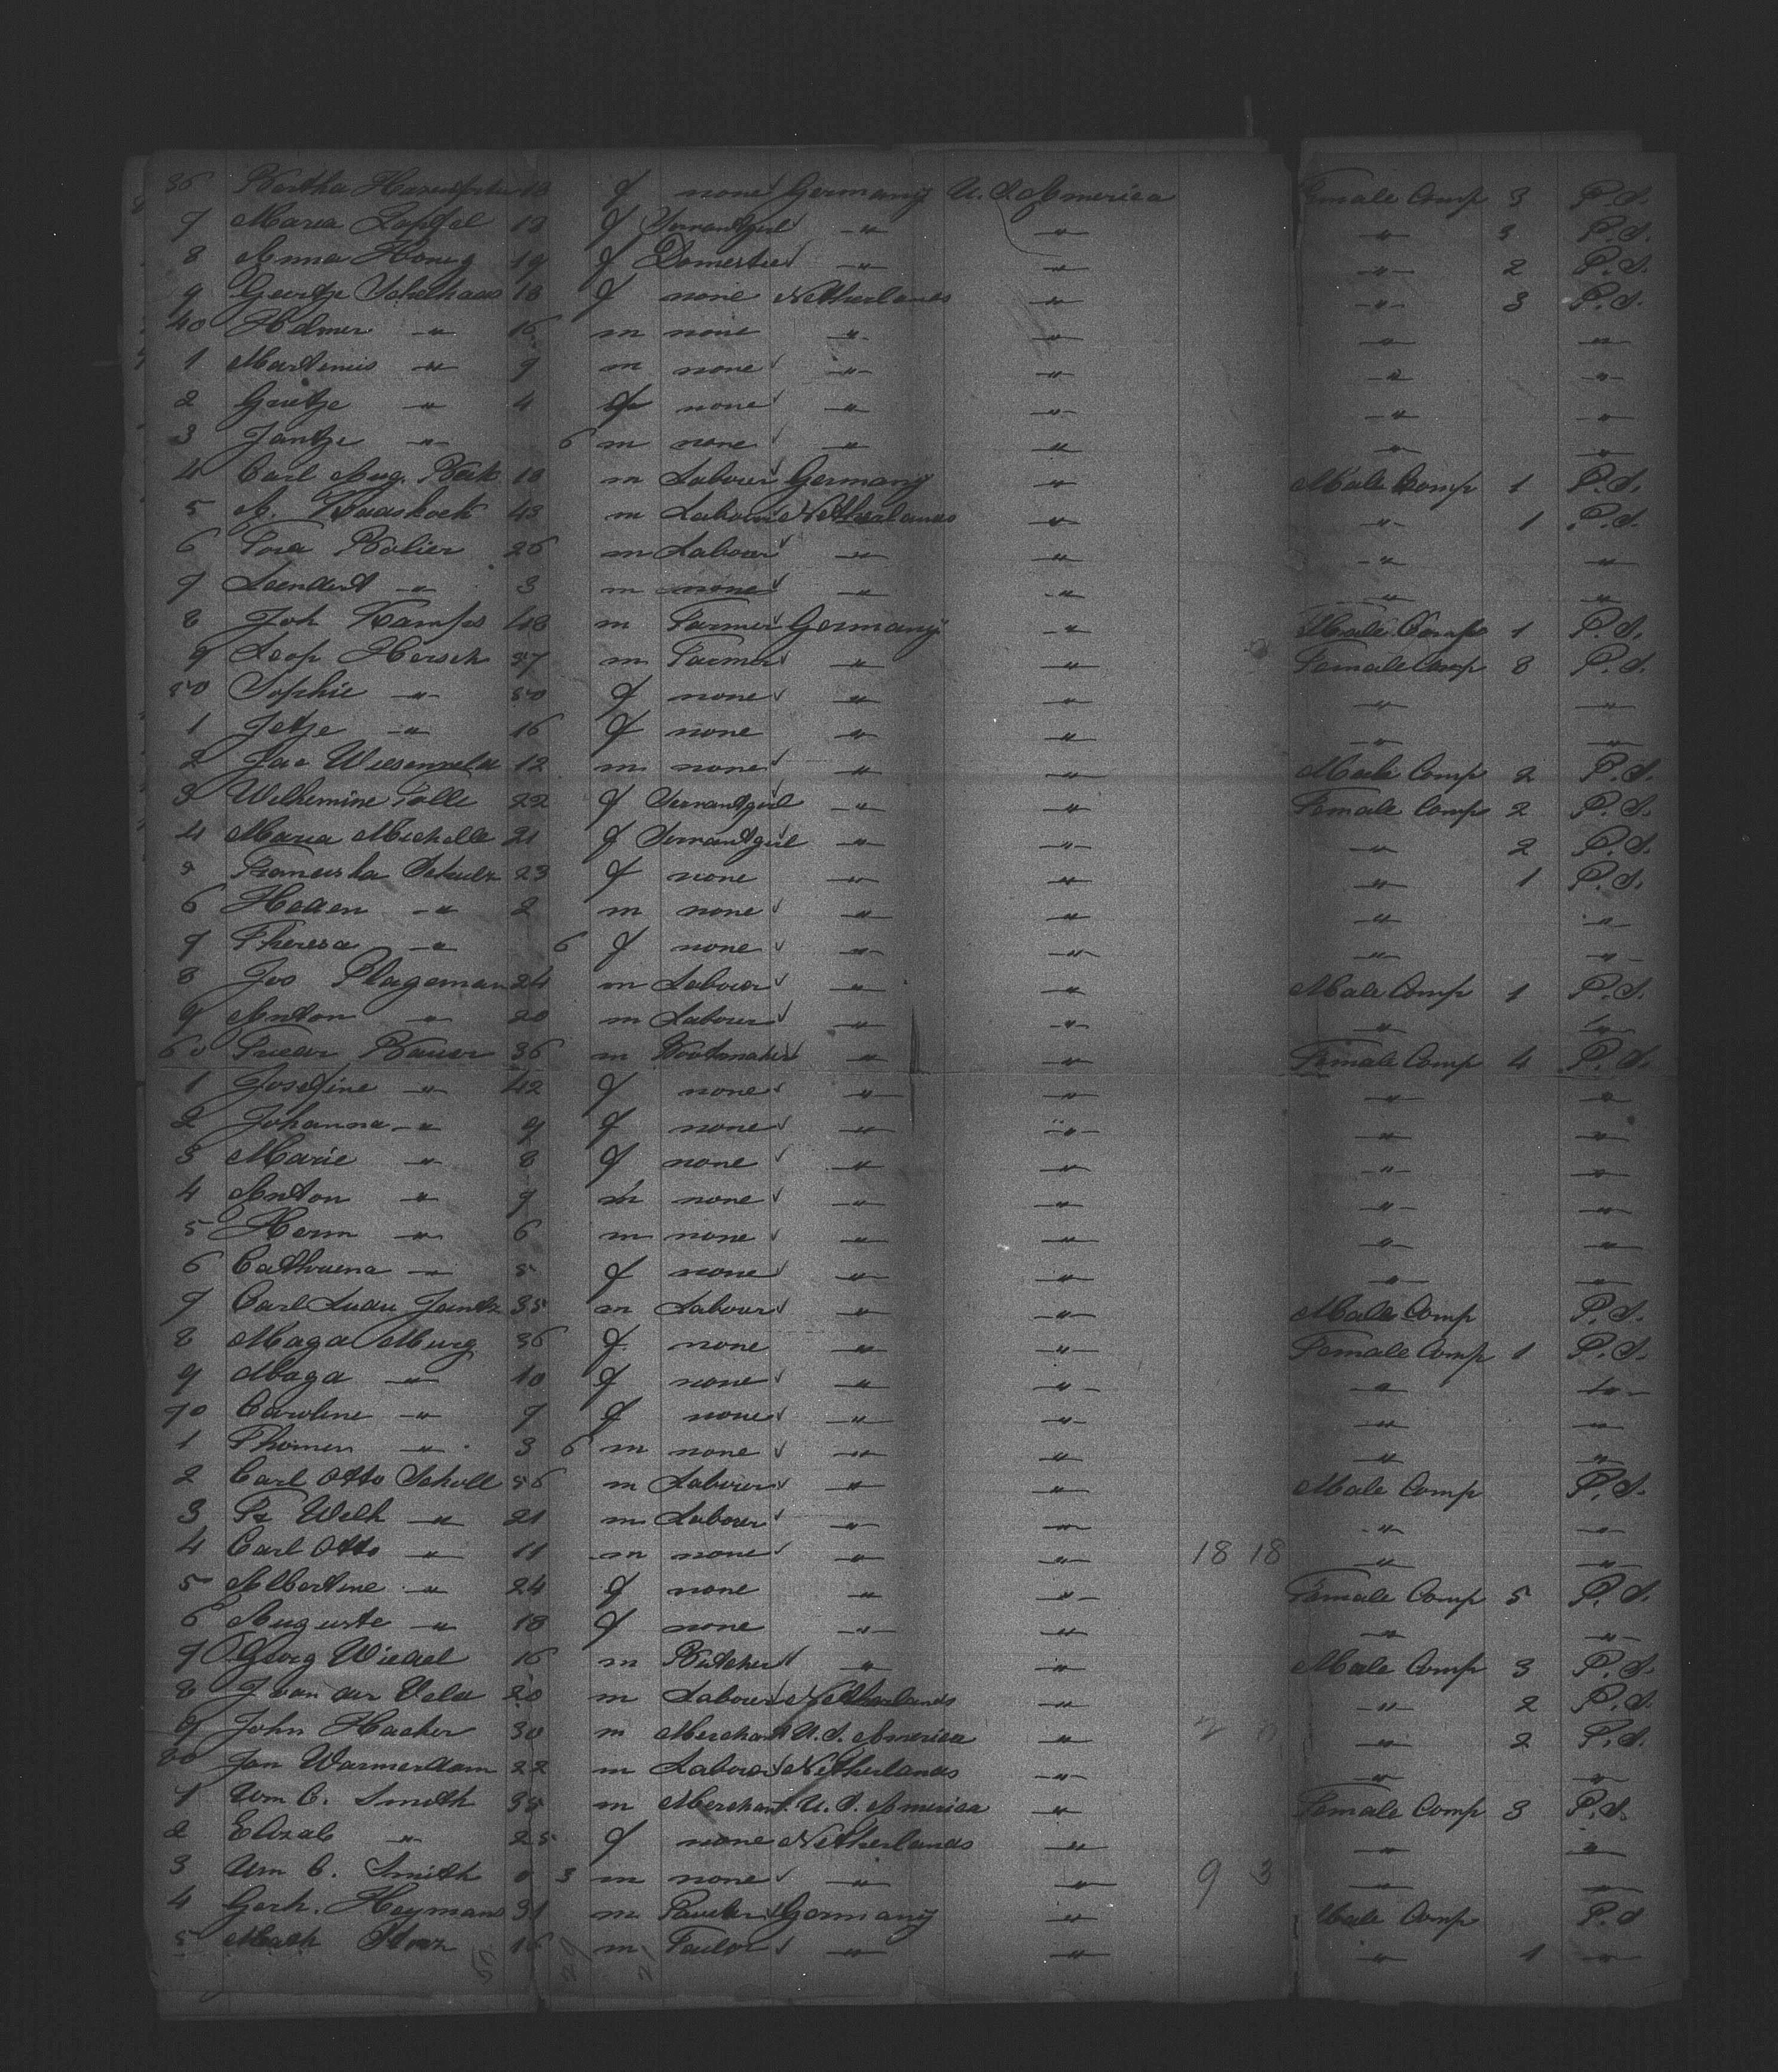 36 Bertha 18 f none Germany U. S. America Female Comp 3 P.S.
7 Maria 18 f Servantgirl -"- -"- -"- 3 P.S.
8 Anna Honig 19 f Domestic -"- -"- -"- 2 P.S.
9 Geertje Schelhaas 18 f none Netherlands -"- -"- 3 P.S.
40 Helmer -"- 16 m none -"- -"- -"- -"-
1 Martinus -"- 9 m none -"- -"- -"- -"-
2 Grietje -"- 4 f none -"- -"- -"- -"-
3 Jantje -"- 6 m none -"- -"- -"- -"-
4 Carl Aug. 18 m Labourer Germany -"- Male Comp 1 P.S.
5 A. Kaashoek 43 m Labourer Netherlands -"- -"- 1 P.S.
6 Rolier 26 m Labourer -"- -"- -"- -"-
7 Leendert -"- 3 m none -"- -"- -"- -"-
8 Joh Kamps 48 m Farmer Germany -"- Male Comp 1 P.S.
9 Leop Hersch 57 m Farmer -"- -"- Female Comp 8 P.S.
50 Sophie -"- 50 f none -"- -"- -"- -"-
1 Jetje -"- 16 f none -"- -"- -"- -"-
2 Jac 12 m none -"- -"- Male Comp 2 P.S.
3 Wilhemine Tolle 22 f Servantgirl -"- -"- Female Comp 2 P.S.
4 Maria 21 f Servantgirl -"- -"- -"- 2 P.S.
5 Franciska Schulz 23 f none -"- -"- -"- 1 P.S.
6 -"- 2 m none -"- -"- -"- -"-
7 Theresa -"- 6 f none -"- -"- -"- -"-
8 Jos Plageman 24 m Labourer -"- -"- Male Comp 1 P.S.
9 Anton -"- 20 m Labourer -"- -"- -"- -"-
60 Bauer 36 m Bootmaker -"- -"- Female Comp 4 P.S.
1 Josefine -"- 42 f none -"- -"- -"- -"-
2 Johanna -"- 9 f none -"- -"- -"- -"-
3 Marie -"- 8 f none -"- -"- -"- -"-
4 Anton -"- 7 m none -"- -"- -"- -"-
5 Herm -"- 6 m none -"- -"- -"- -"-
6 Cathriena -"- 5 f none -"- -"- -"- -"-
7 Carl 35 m Labourer -"- -"- Male Comp P.S.
8 Maga Murg 36 f none -"- -"- Female Comp 1 P.S.
9 Maga -"- 10 f none -"- -"- -"- -"-
70 Caroline -"- 7 f none -"- -"- -"- -"-
1 -"- 3 6 m none -"- -"- -"- -"-
2 Carl Otto Scholl 56 m Labourer -"- -"- Male Comp P.S.
3 Fz Welh -"- 21 m Labourer -"- -"- -"- -"-
4 Carl Otto -"- 11 m none -"- -"- 18 18 -"- -"-
5 Albertine -"- 24 f none -"- -"- Female Comp 5 P.S.
6 Auguste -"- 18 f none -"- -"- -"- -"-
7 Georg 16 m Butcher -"- -"- Male Comp 3 P.S.
8 J van der Veld 20 m Labourer Netherlands -"- -"- 2 P.S.
9 John Hacker 30 m Merchant U. S. America -"- -"- 2 P.S.
80 Jan Warmerdam 22 m Labourer Netherlands -"- -"- -"-
1 Wm C. Smith 35 m Merchant U. S. America -"- Female Comp 3 P.S.
2 Elizab -"- 25 f none Netherlands -"- -"- -"-
3 Wm C. Smith 0 3 m none -"- -"- 9 3 -"- -"-
4 Gerh. Heymans 31 m Germany -"- Male Comp P.S
5 16 m Tailor -"- -"- -"- 1 -"-